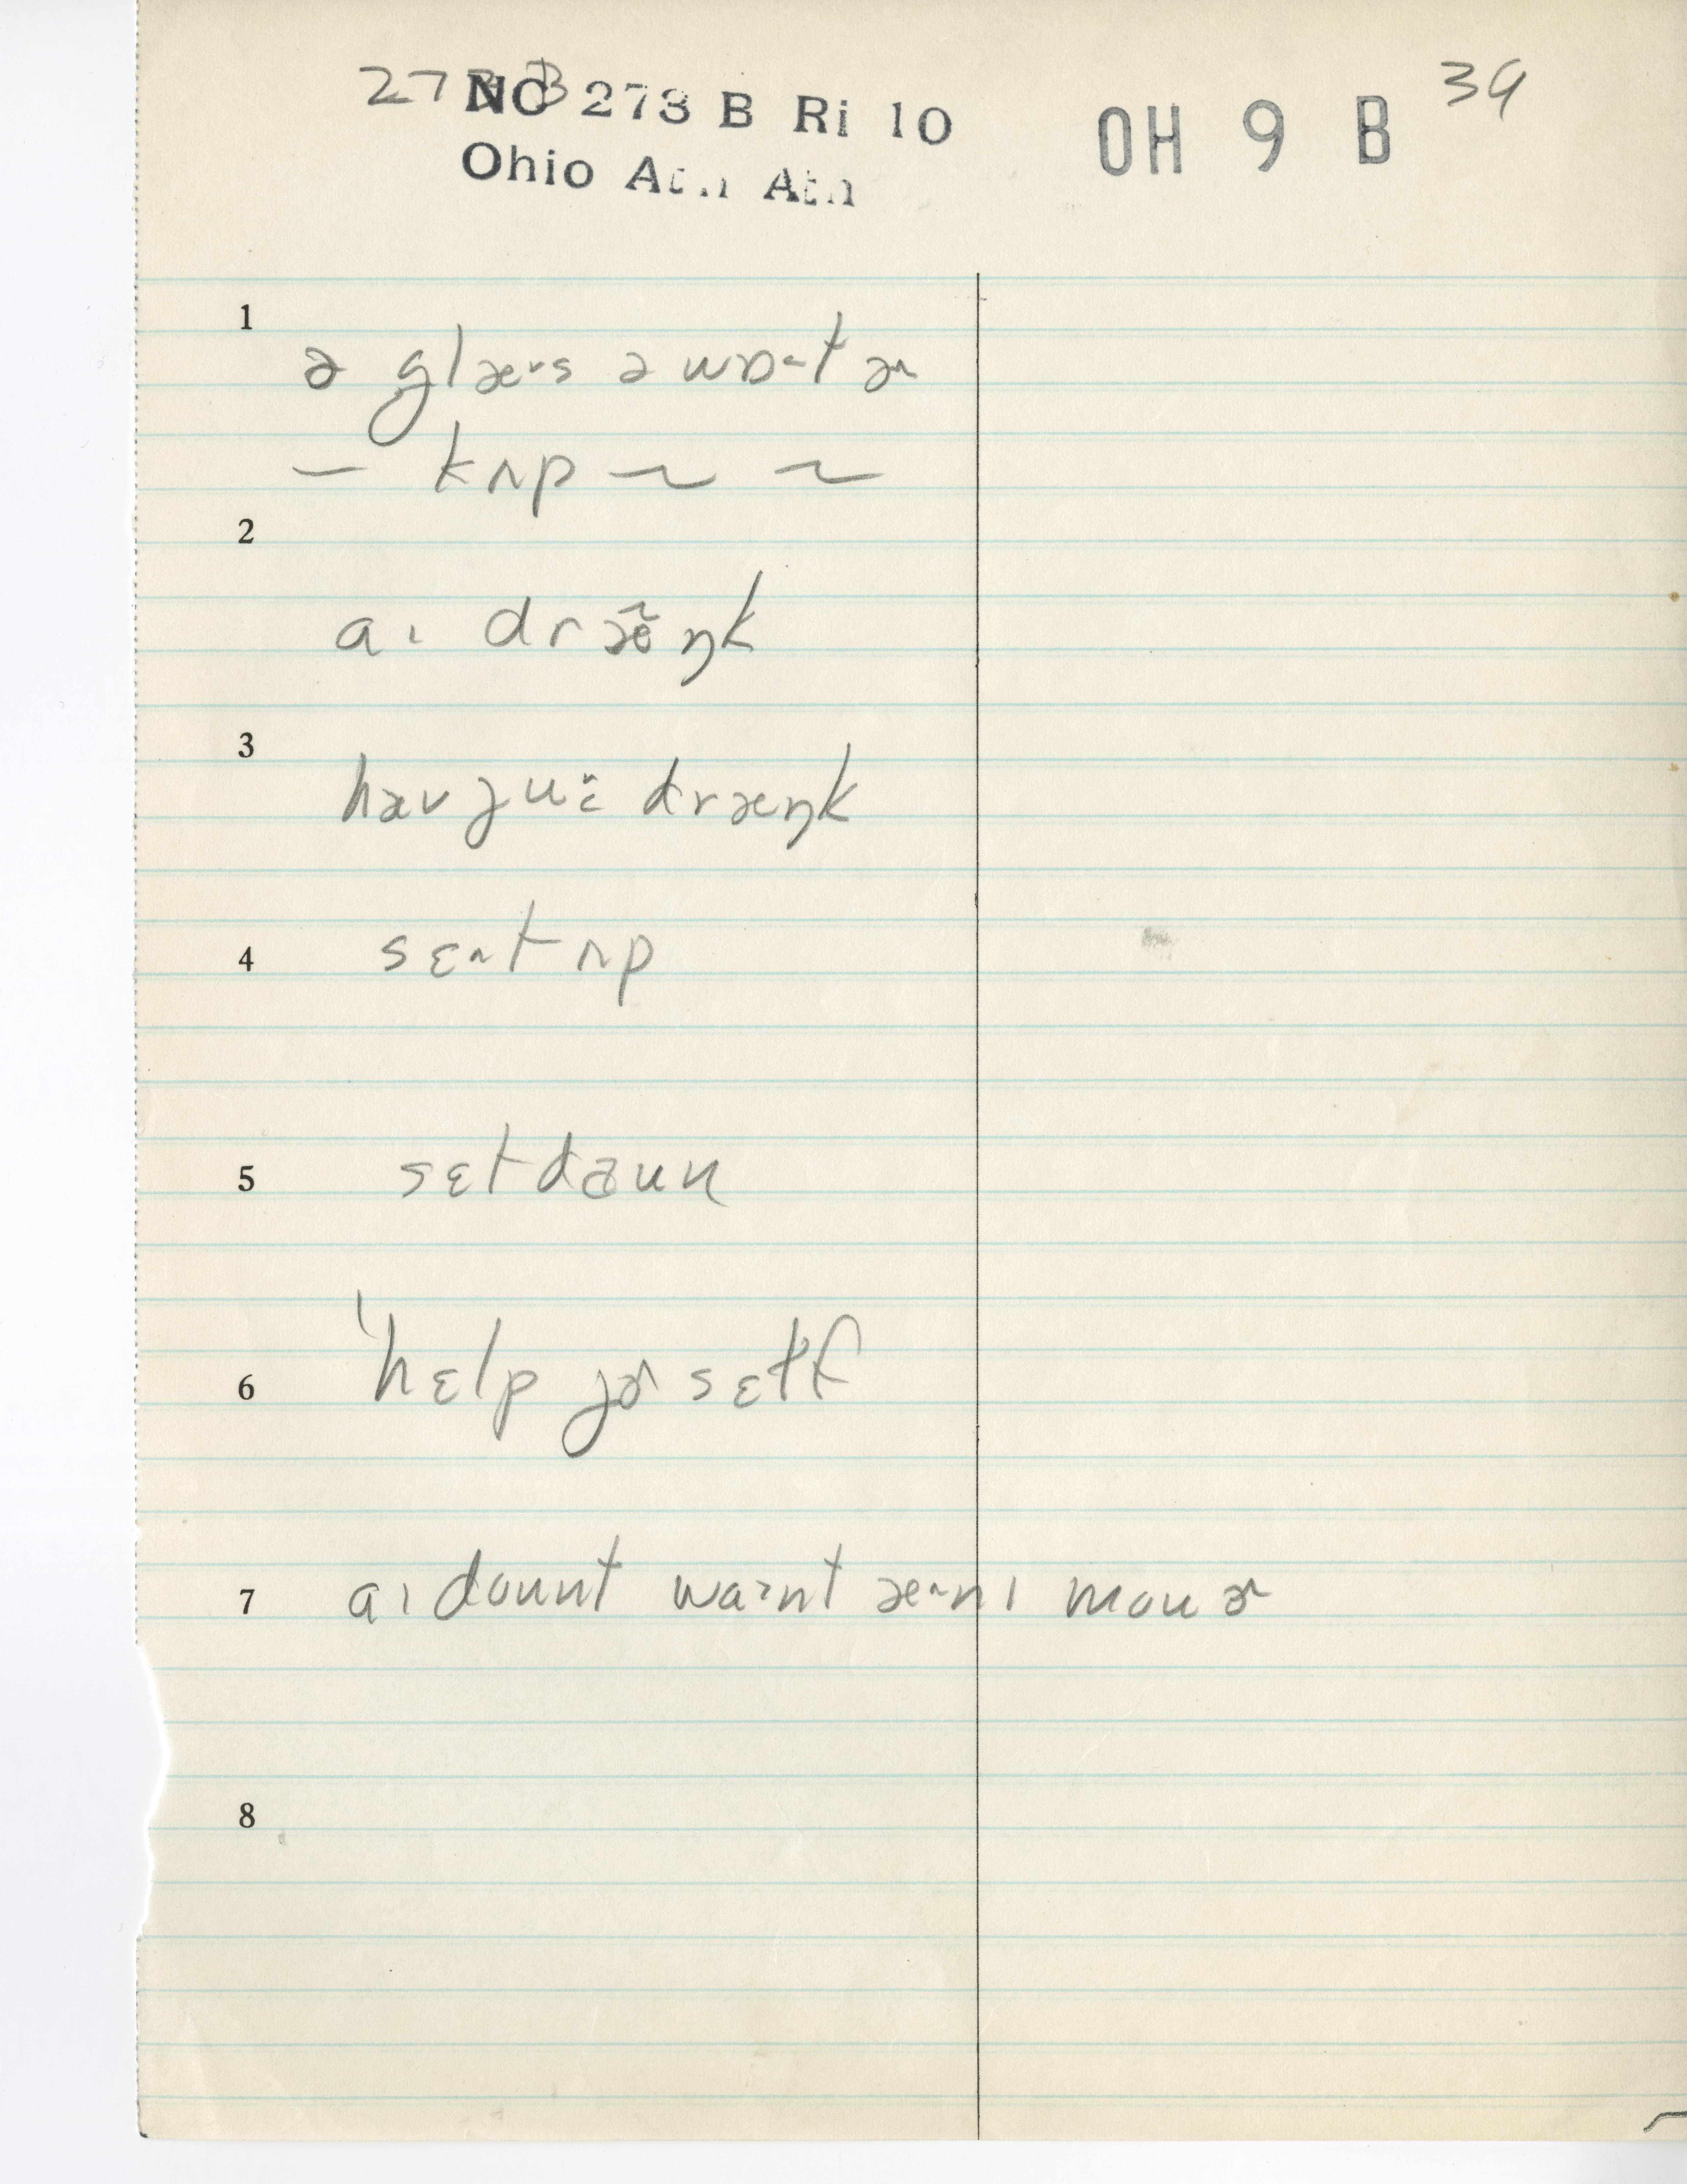 273 B NC 273 B Ri 10 OH 9 B 39
Ohio Ath Ath
1
ə glæˑs ə wɒˑtɚ
— kʌp ~ ~
2
aɪ dræ̃ŋk
3
hæv ju: dræŋk
4 sɛˑt ʌp
5 sɛt daun
6 'hɛlp jɚ sɛɫf
7 aɪ dount waˑnt æˑnɪ mouɚ
8